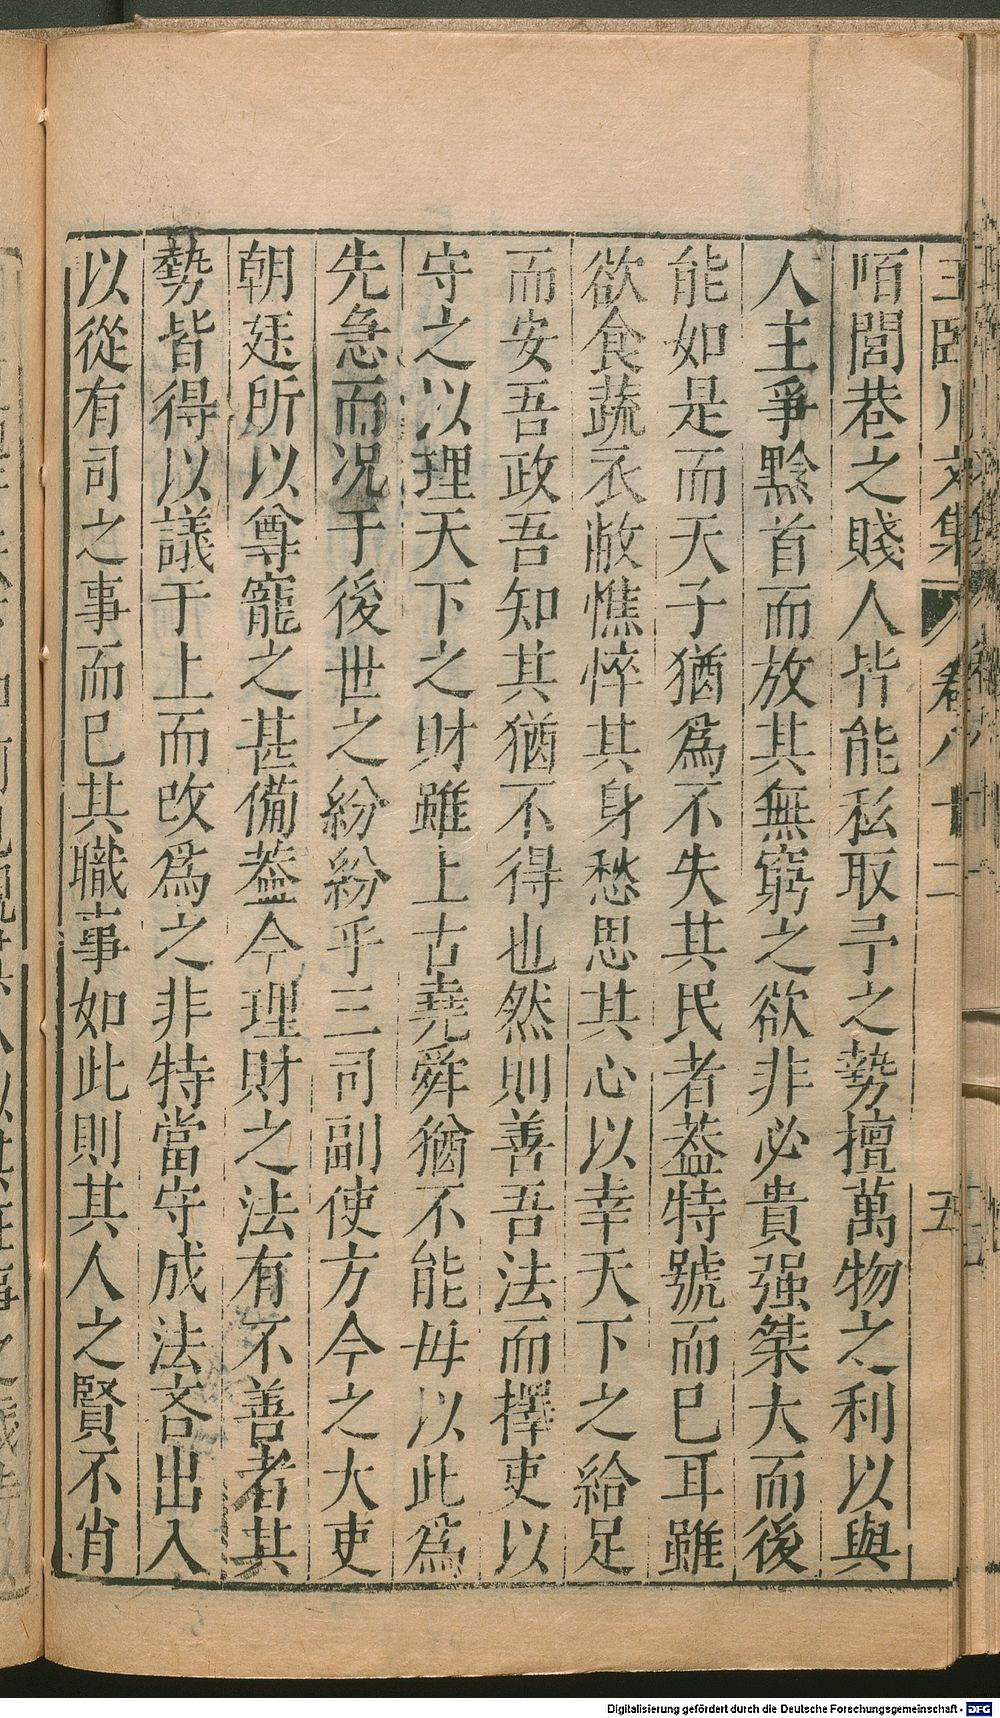 王臨川文集 卷八十二 五
陌閭巷之賤人皆能私取予之勢擅萬物之利以與
人主爭黔首而放其無窮之欲非必貴强桀大而後
能如是而天子猶爲不失其民者葢特號而已耳雖
欲食蔬衣敝憔悴其身愁思其心以幸天下之給足
而安吾政吾知其猶不得也然則善吾法而擇吏以
守之以理天下之財雖上古堯舜猶不能毋以此爲
先急而况于後世之紛紛乎三司副使方今之大吏
朝廷所以尊寵之甚備葢今理財之法有不善者其
勢皆得以議于上而改爲之非特當守成法吝出入
以從有司之事而已其職事如此則其人之賢不肖
Digitalisierung gefördert durch die Deutsche Forschungsgemeinschaft - DFG